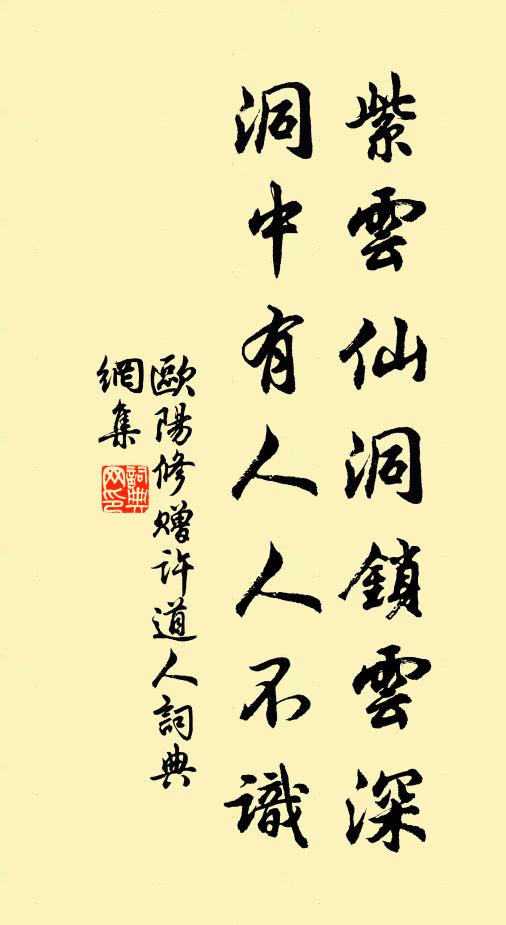 紫雲仙洞鎖雲深
洞中有人人不識
歐陽修贈許道人詞典
網集
詞典網印